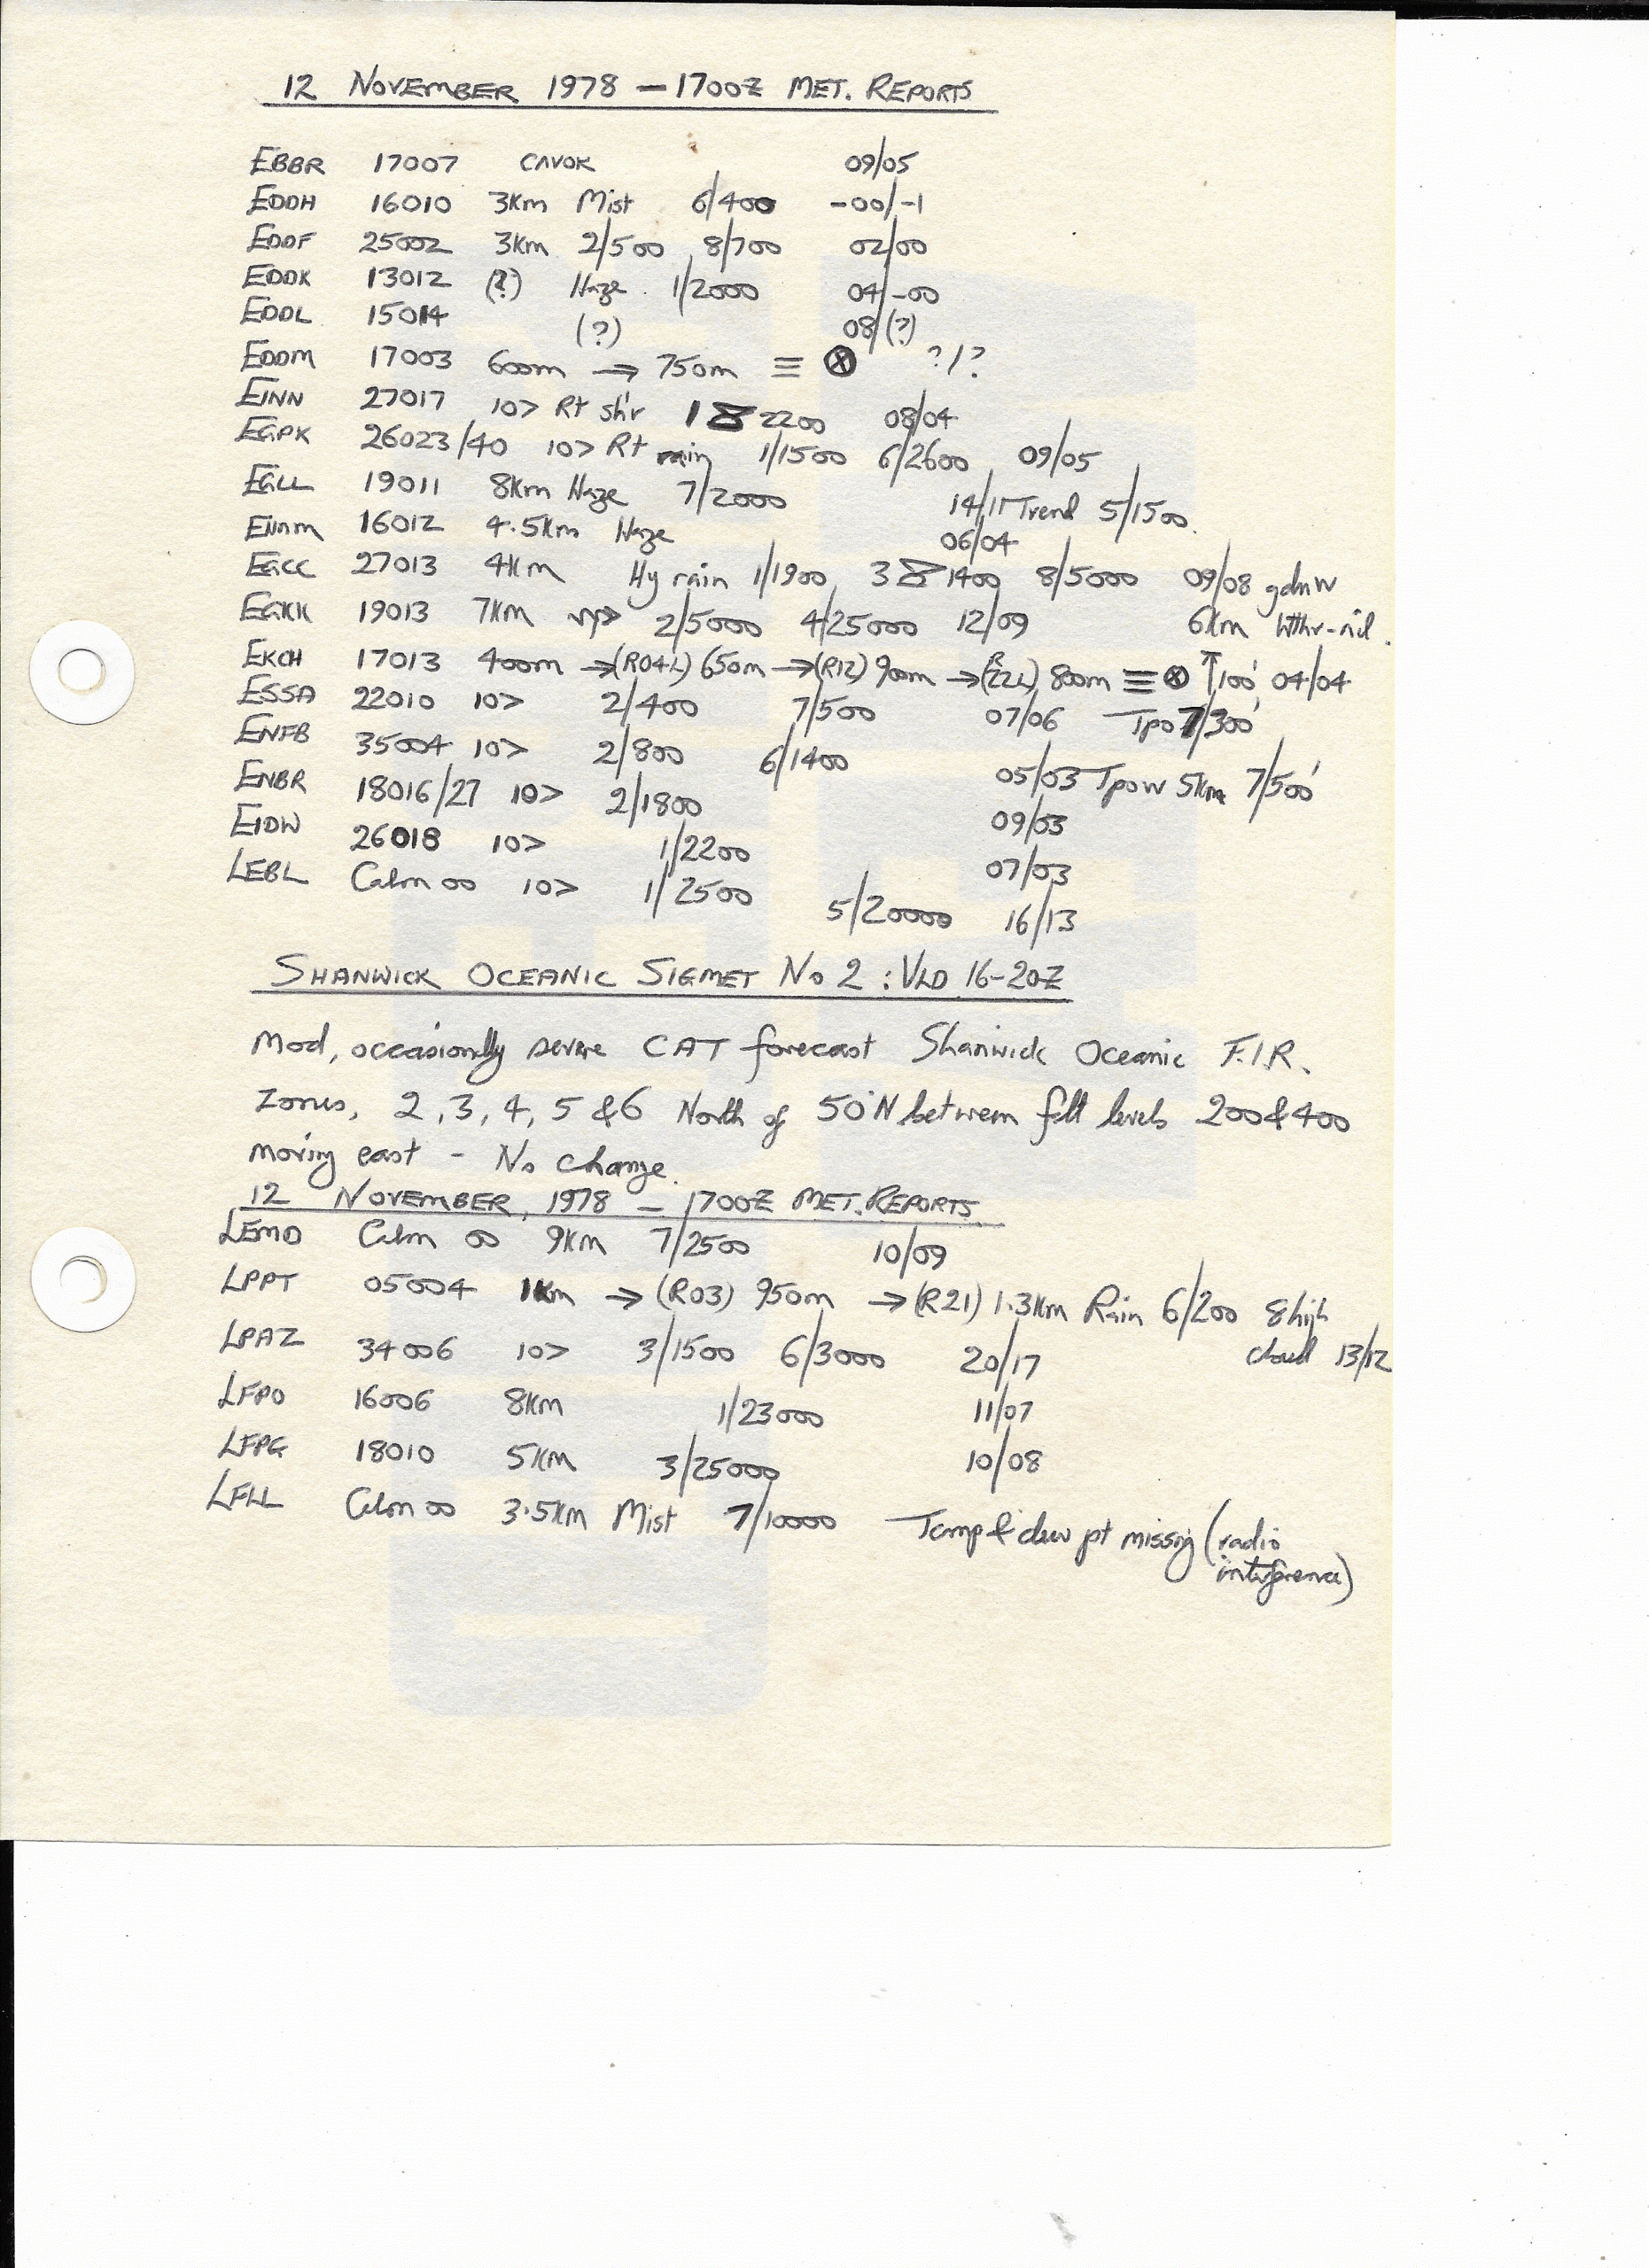 12 NOVEMBER 1978 — 1700Z MET. REPORTS
EBBR 17007 CAVOK 09/05
EDDH 16010 3Km Mist 6/400 -00/-1
EDDF 25002 3Km 2/500 8/700 02/00
EDDK 13012 (?) Haze 1/2000 04/-00
EDDL 15014 (?) 08/(?)
EDDM 17003 600m → 750m ≡ ⊗ ?/?
EINN 27017 10> Rt sh'r 1 2200 08/04
EGPK 26023/40 10> Rt rain 1/1500 6/2600 09/05
EGLL 19011 8Km Haze 7/2000 14/11 Trend 5/1500
16012 4.5Km Haze 06/04
EGCC 27013 4Km Hy rain 1/1900 3 1400 8/5000 09/08 gdnw
EGKK 19013 7Km 2/5000 4/25000 12/09 6Km Wthr-nil.
EKCH 17013 400m →(R04L) 650m →(R12) 900m →(R22L) 800m ≡ ⊗ ↑100' 04/04
ESSA 22010 10> 2/400 7/500 07/06 Tpo 7/300'
ENFB 35004 10> 2/800 6/1400 05/03 Tpow 5Km 7/500'
ENBR 18016/27 10> 2/1800 09/03
EIDW 26018 10> 1/2200 07/03
LEBL Calm 00 10> 1/2500 5/20000 16/13
SHANWICK OCEANIC SIGMET No 2 : VLD 16-20Z
Mod, occasionally severe CAT forecast Shanwick Oceanic F.I.R.
Zones, 2, 3, 4, 5 & 6 North of 50°N between flt levels 200 & 400
moving east - No change.
12 NOVEMBER, 1978 — 1700Z MET. REPORTS
LEMD Calm 00 9Km 7/2500 10/09
LPPT 05004 1Km → (R03) 950m → (R21) 1.3Km Rain 6/200 8 high
cloud 13/12
LPAZ 34006 10> 3/1500 6/3000 20/17
LFPO 16006 8Km 1/23000 11/07
LFPG 18010 5Km 3/25000 10/08
LFLL Calm 00 3.5Km Mist 7/10000 Temp & dew pt missing (radio
interference)